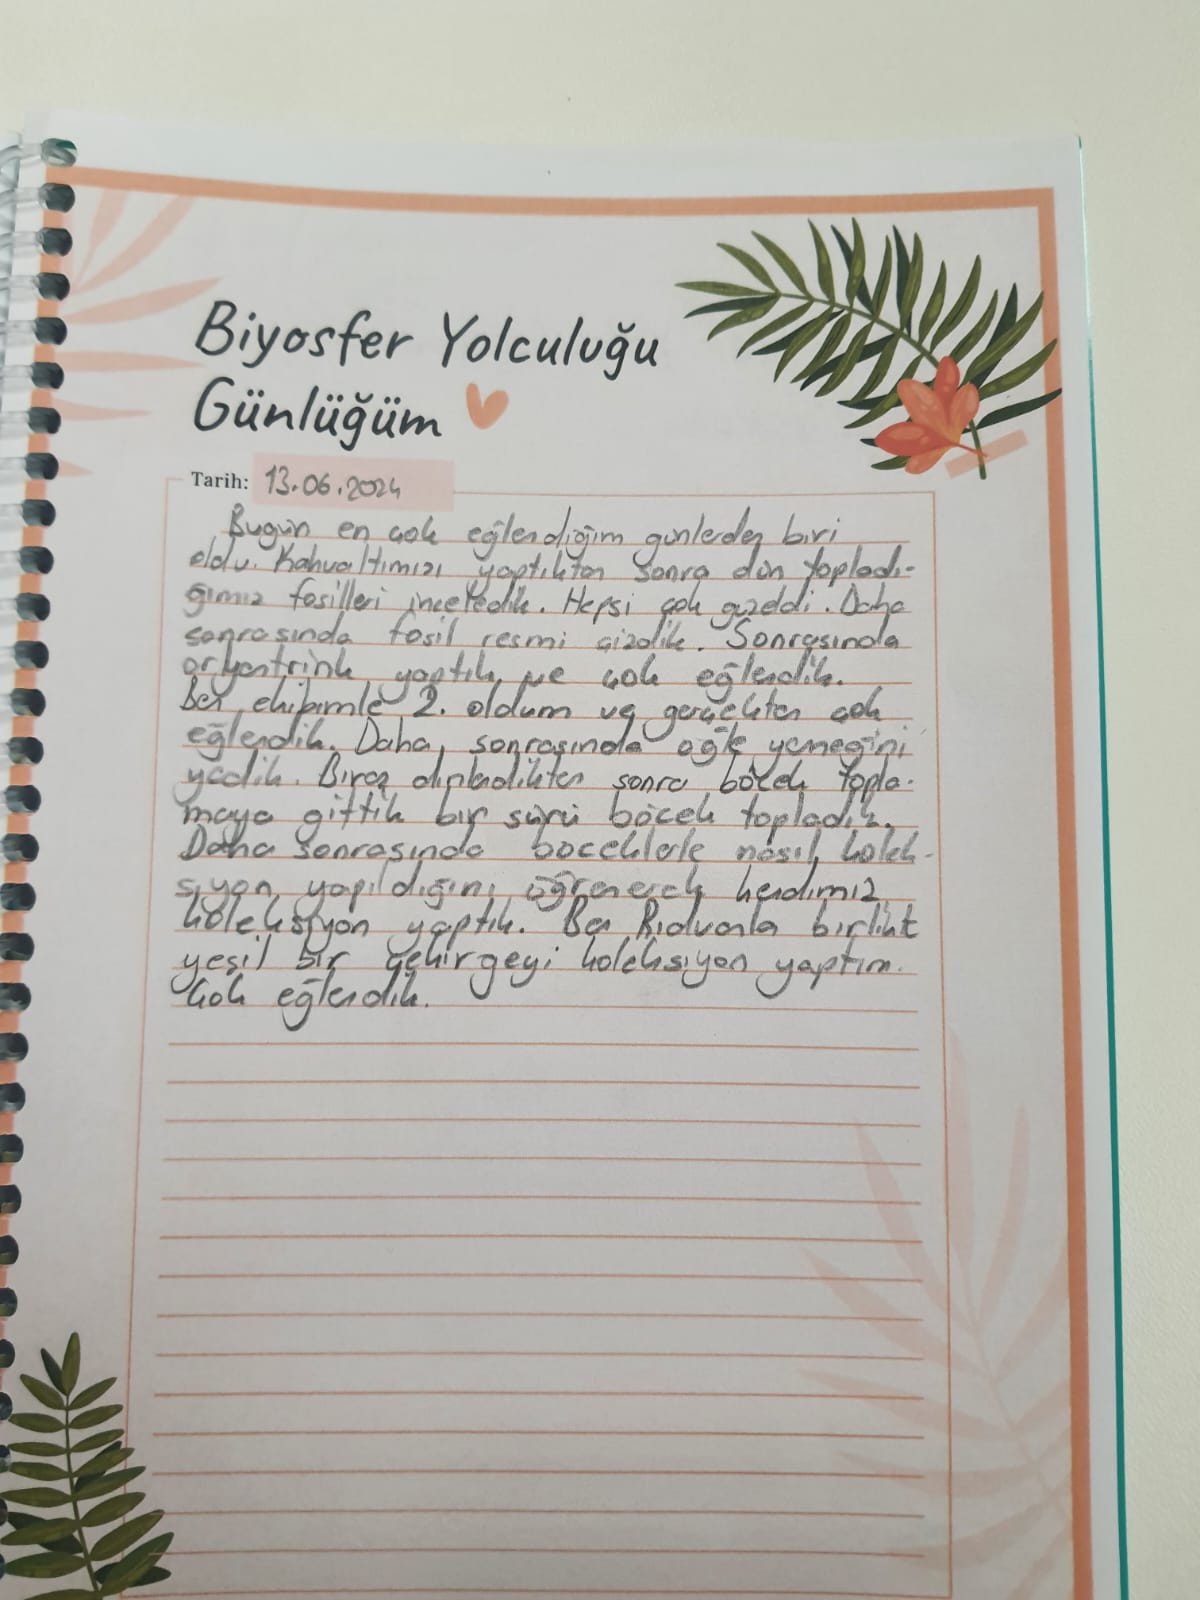 Biyosfer Yolculuğu
Günlüğüm
Tarih: 13.06.2024
Bugün en çok eğlendiğim günlerden biri
oldu. Kahvaltımızı yaptıktan sonra dün topladı-
ğımız fosilleri inceledik. Hepsi çok güzeldi. Daha
sonrasında fosil resmi çizdik. Sonrasında
oryantrink yaptık ve çok eğlendik.
Ben ekibimle 2. oldum ve gerçekten çok
eğlendik. Daha sonrasında öğle yemeğini
yedik. Biraz dinlendikten sonra böcek topla-
maya gittik bir sürü böcek topladık.
Daha sonrasında böceklerle nasıl kolek-
siyon yapıldığını öğrenerek kendimiz
koleksiyon yaptık. Ben Rıdvanla birlikt
yeşil bir çekirgeyi koleksiyon yaptım.
Çok eğlendik.